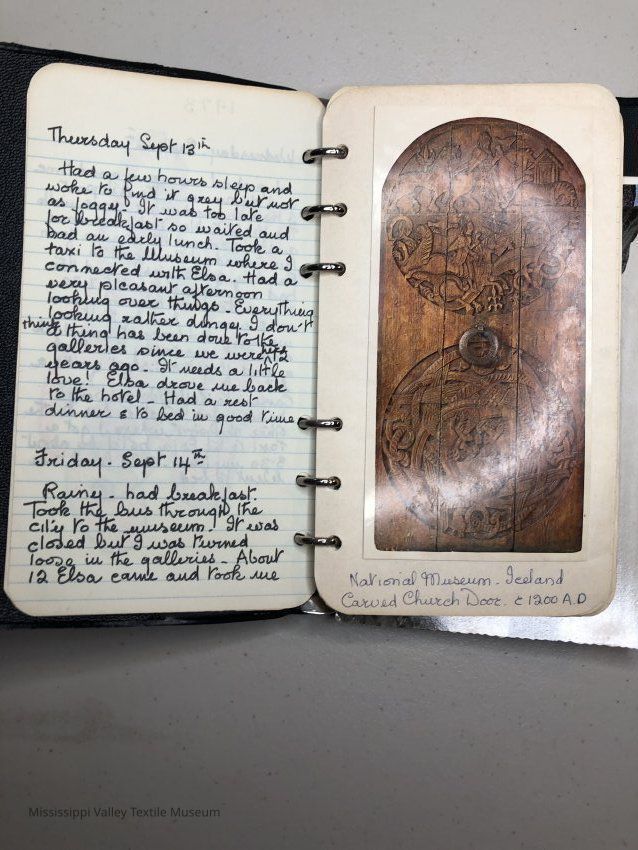 Thursday Sept 13th
Had a few hours sleep and
woke to find it grey but not
as foggy. It was too late
for breakfast so waited and
had an early lunch. Took a
taxi to the Museum where I
connected with Elsa. Had a
very pleasant afternoon
looking over things. Everything
looking rather dingy. I don't
think thing has been done to the
galleries since we were here 12
years ago. It needs a little
love! Elsa drove me back
to the hotel. Had a rest
dinner & to bed in good time
Friday. Sept 14th
Rainy - had breakfast.
Took the bus through the
city to the museum! It was
closed but I was turned
loose in the galleries - About
12 Elsa came and took me
National Museum. Iceland
Carved Church Door. c 1200 A.D
Mississippi Valley Textile Museum